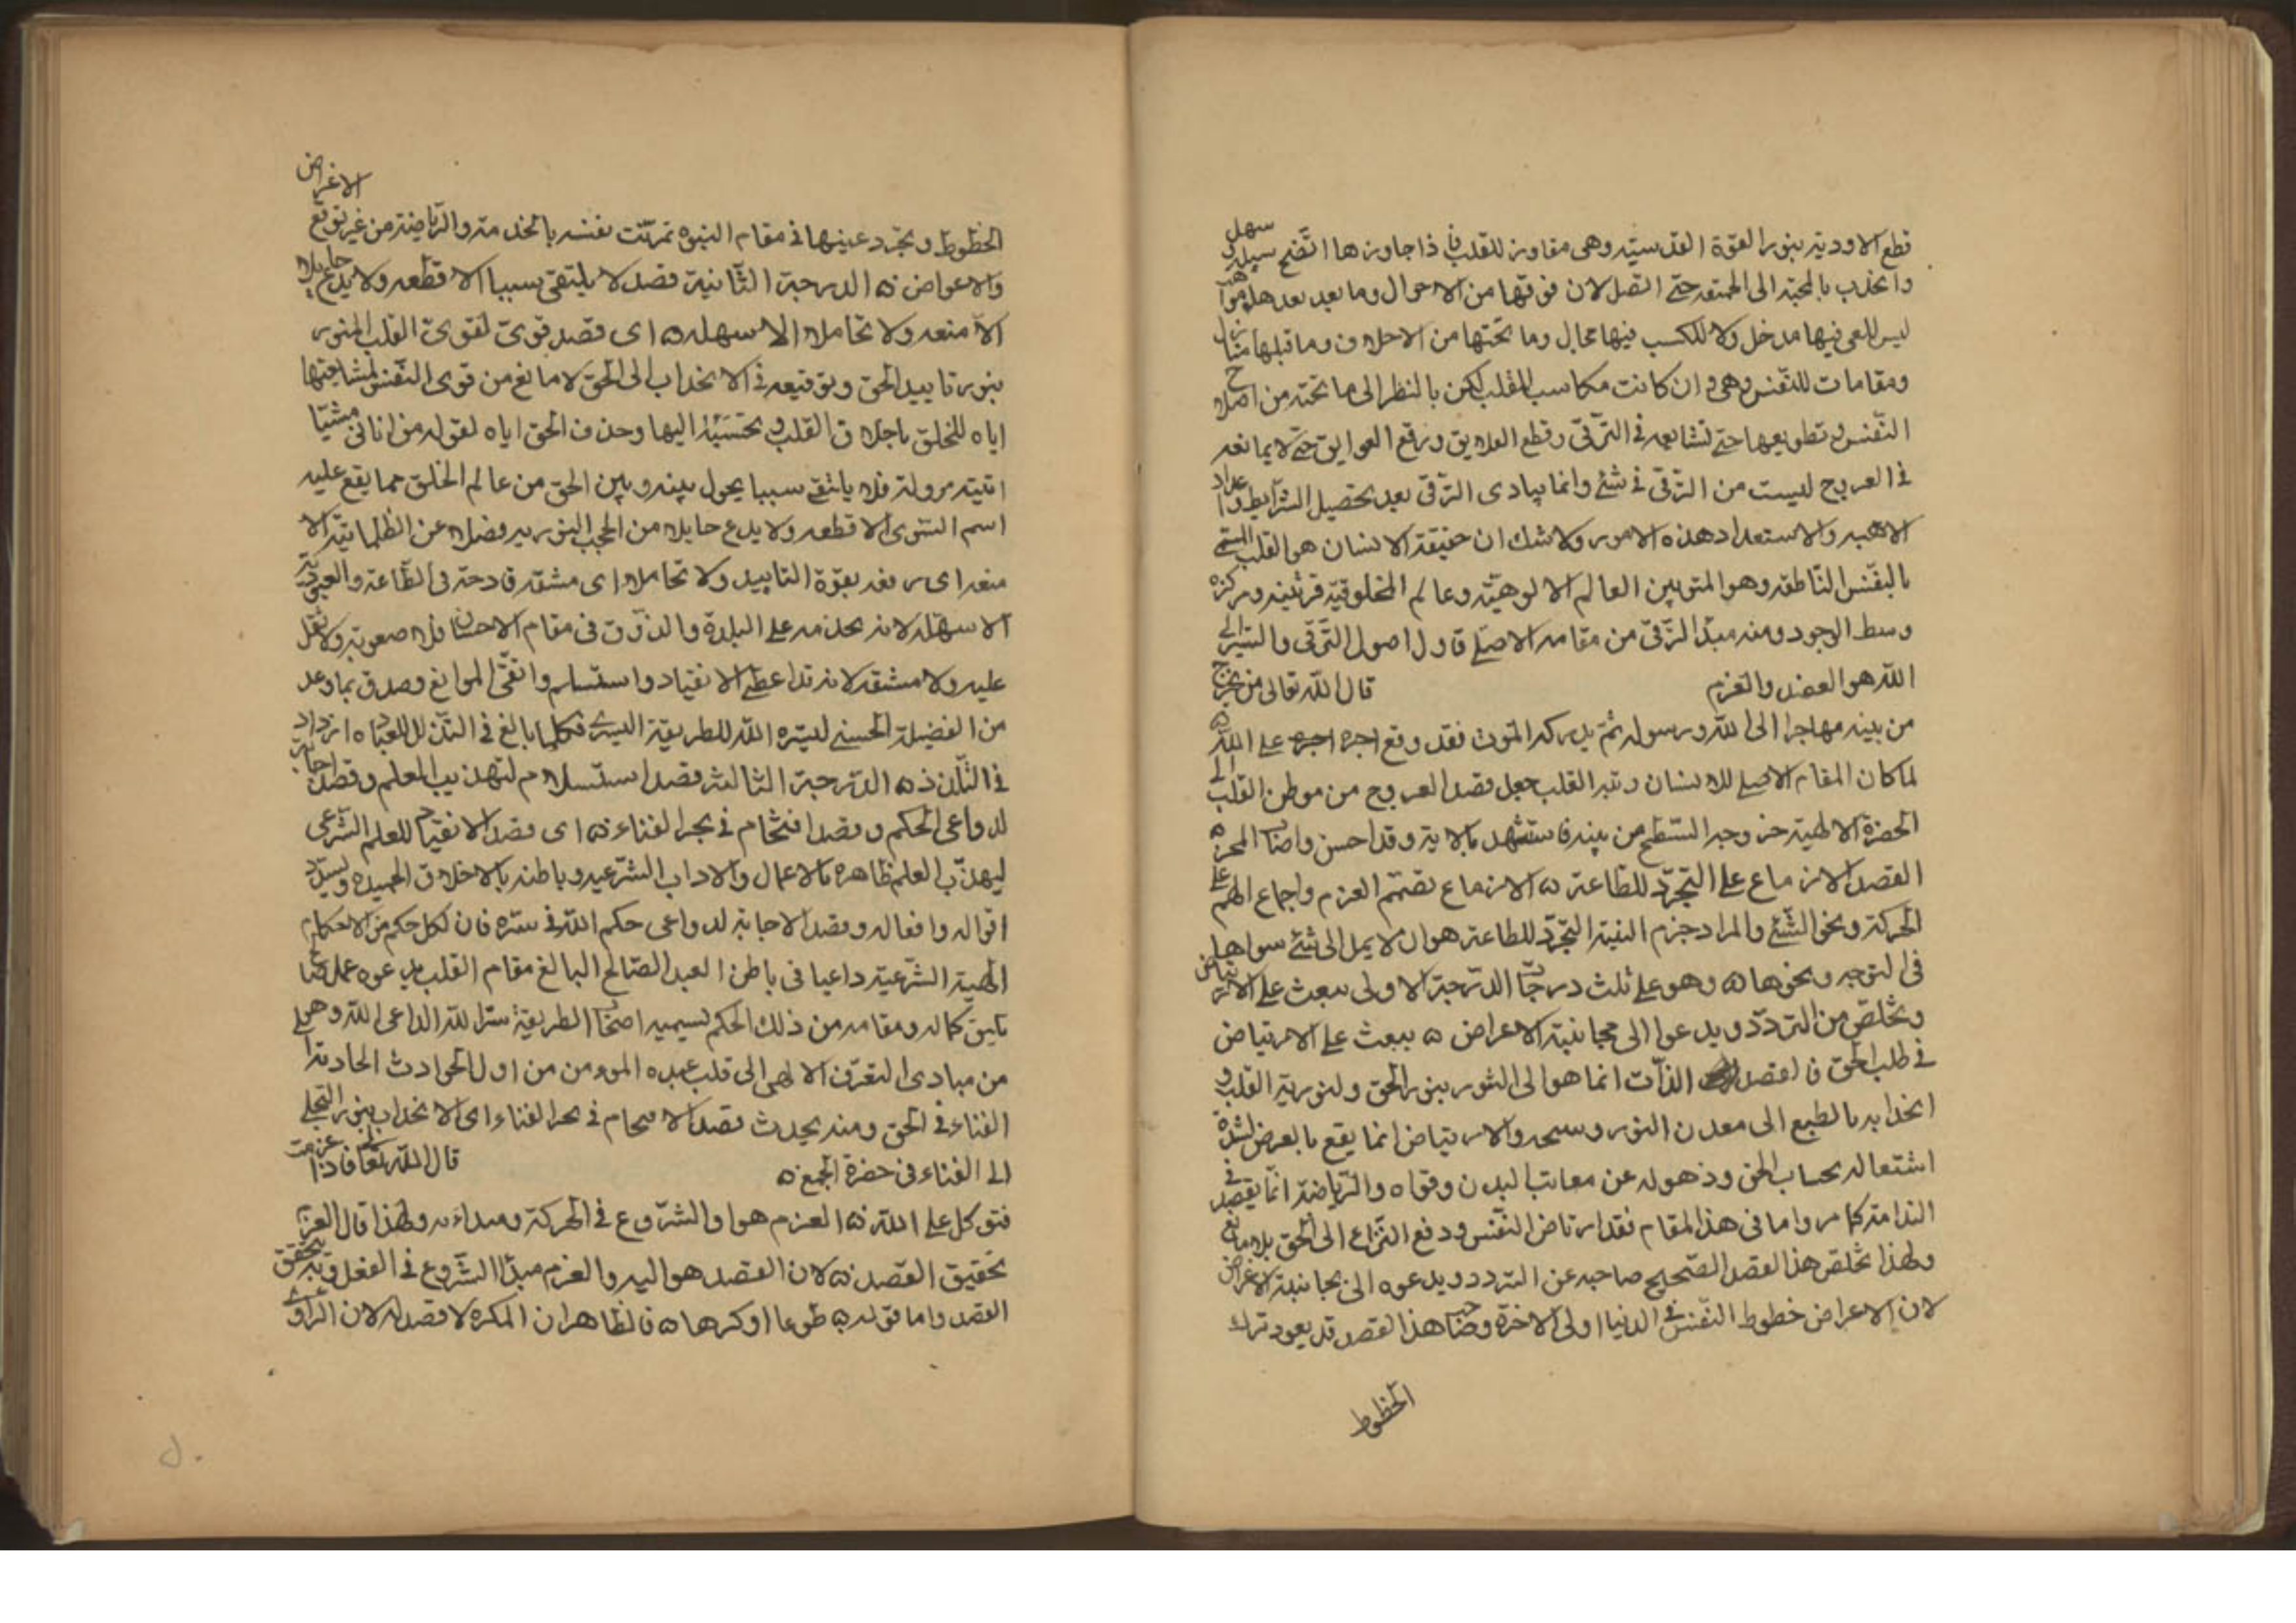 قطع الاودية بنور القوة القدسية وهى مفاوز للقلب فاذا جاوزها اتضح سبيله وسهل
وانجذب بالمحبة الى الجمعية حتى اتصل لان فوقها من الاحوال وما بعد بعدها مواهب
ليس للعى فيها مدخل ولا للكسب فيها مجال وما تحتها من الاخلاق وما قبلها منازل
ومقامات للنفس وهى وان كانت مكاسب للقلب لكن بالنظر الى ما تحته من اصلاح
النفس وتطويعها حتى تشايعه فى الترقى وقطع العلايق ورفع العوايق حتى لا يمانعه
فى العروج ليست من الترقى فى شئ وانما يبادى الترقى بعد تحصيل الشرايط واعداد
الاهبه والاستعداد هذه الامور ولا شك ان حقيقة الانسان هو القلب المسمى
بالنفس الناطقه وهو المتوبين العالم الالوهيته وعالم المخلوقية فرتبته ومركزه
وسط الوجود ومنه مبدأ الترقى من مقامه الاصلى فاول اصول الترقى والسير الى
الله هو القصد والعزم قال الله تعالى من يخرج
من بيته مهاجرا الى الله ورسوله ثم يدركه الموت فقد وقع اجره اجره على الله ه
لما كان المقام الاصلى للانسان رتبه القلب جعل قصد العروج من موطن القلب الى
الحضرة الالهية خروجه من بينه فاستشهد بالاية وقد احسن واصاب المحزه
القصد الازماع على التجرد للطاعة ه الازماع تصتم العزم واجماع الهم على
الحركة ونحو الشئ والمراد جزم النية التجرد للطاعة هو ان لا يمل الى شئ سواها
فى التوجه ونحوها ه وهو على ثلث درجات الدرجة الاولى يبعث على الارتياض
وتخلص من التردد ويدعوا الى مجانبة الاعراض ه يبعث على الارتياض
فى طلب الحق فالقصد الذات انما هو الى النور بنور الحق ولنورية القلب و
انجذابه بالطبع الى معدن النور وسحه والارتياض انما يقع بالعرض لشدة
اشتعاله بحساب الحق وذهوله عن معاتب البدن وقواه والرياضة انما يقصد فى
الندامة كما مر واما فى هذا المقام فقد ارتاض النفس ودفع النزاع الى الحق بلا مانع
ولهذا تخلص هذا القصد الصحيح صاحبه عن التردد ويدعوه الى مجانبة الاغراض
لان الاعراض خطوط النفس فى الدنيا اولى الاخرة وصاحب هذا القصد قد يعود ترك
الحظوط
الحظوط وتجرد عينها فى مقام النبوه تمرنت نفسه بالخدمة والرياضة من غير توقع الاغراض
والاعواض ه الدرجة الثانية قصد لا يلتقى سببا الا قطعه ولا يدع حايلا
الا منعه ولا تحاملا الا سهله ه اى قصد قوى لقوى القلب المنور
بنور تاييد الحق وتوقيعه فى الانجذاب الى الحق لا مانع من قوى النفس لمشايعتها
اياه للتخلق باجلاق القلب وتحسبه اليها وحذف الحق اياه لقوله من اتانى مشيا
اتيته هرولة فلا يلتقى سببا يحول بينه وبين الحق من عالم الخلق مما يقع عليه
اسم السوى الا قطعه ولا يدع حايلا من الحجب النوريه فضلا عن الظلمانية الا
منعه اى رفعه بقوة التاييد ولا تحاملا اى مشقه فادحة فى الطاعة والعبودية
الا سهله لانه يحذمه على البلدة والذوق فى مقام الاحسان فلا صعوبة ولا ثقل
عليه ولا مشقه لانه قد اعطى الانقياد واستسلم وانقى الموانع وصدق بما وعد
من الفضيلة الحسنى ليسره الله للطريقة اليسرى فكلما بالغ فى التذلل للعباده ازداد
فى التلذذ ه الدرجة الثالثة قصد استسلام لتهذيب العلم وقصد اجابة
لدواعى الحكم وقصد افتحام فى بحر الفناء ه اى قصد الانقياد للعلم الشرعى
ليهذب العلم ظاهره بالاعمال والاداب الشرعيه وباطنه بالاخلاق الحميده وليسدد
اقواله وافعاله وقصد الاجابة لدواعى حكم الله فى سره فان لكل حكم من الاحكام
الهية الشرعية داعيا فى باطن العبد الصالح البالغ مقام القلب يدعوه عمل صالح
تليق كماله ومقامه من ذلك الحكم يسيميه اصحاب الطريقة سر الله الداعى الله وهو على
من مبادى التعرف الالهى الى قلب عبده المومن من اول الحوادث الحادثة
الفناء فى الحق ومنه يحدث قصد الاقتحام فى بحر الفناء اى الانجذاب بنور التجلى
الى الفناء فى حضرة الجمع ه قال الله تعالى فاذا عزمت
فتوكل على الله ه العزم هو اول الشروع فى الحركة ومبداءه ولهذا قال العزم
تحقيق القصد ه لان القصد هو اليه والعزم مبدأ الشروع فى الفعل وبه يتحقق
القصد واما قوله ه طوعا او كرها ه فالظاهر ان المكره لا قصد له لان الراوى